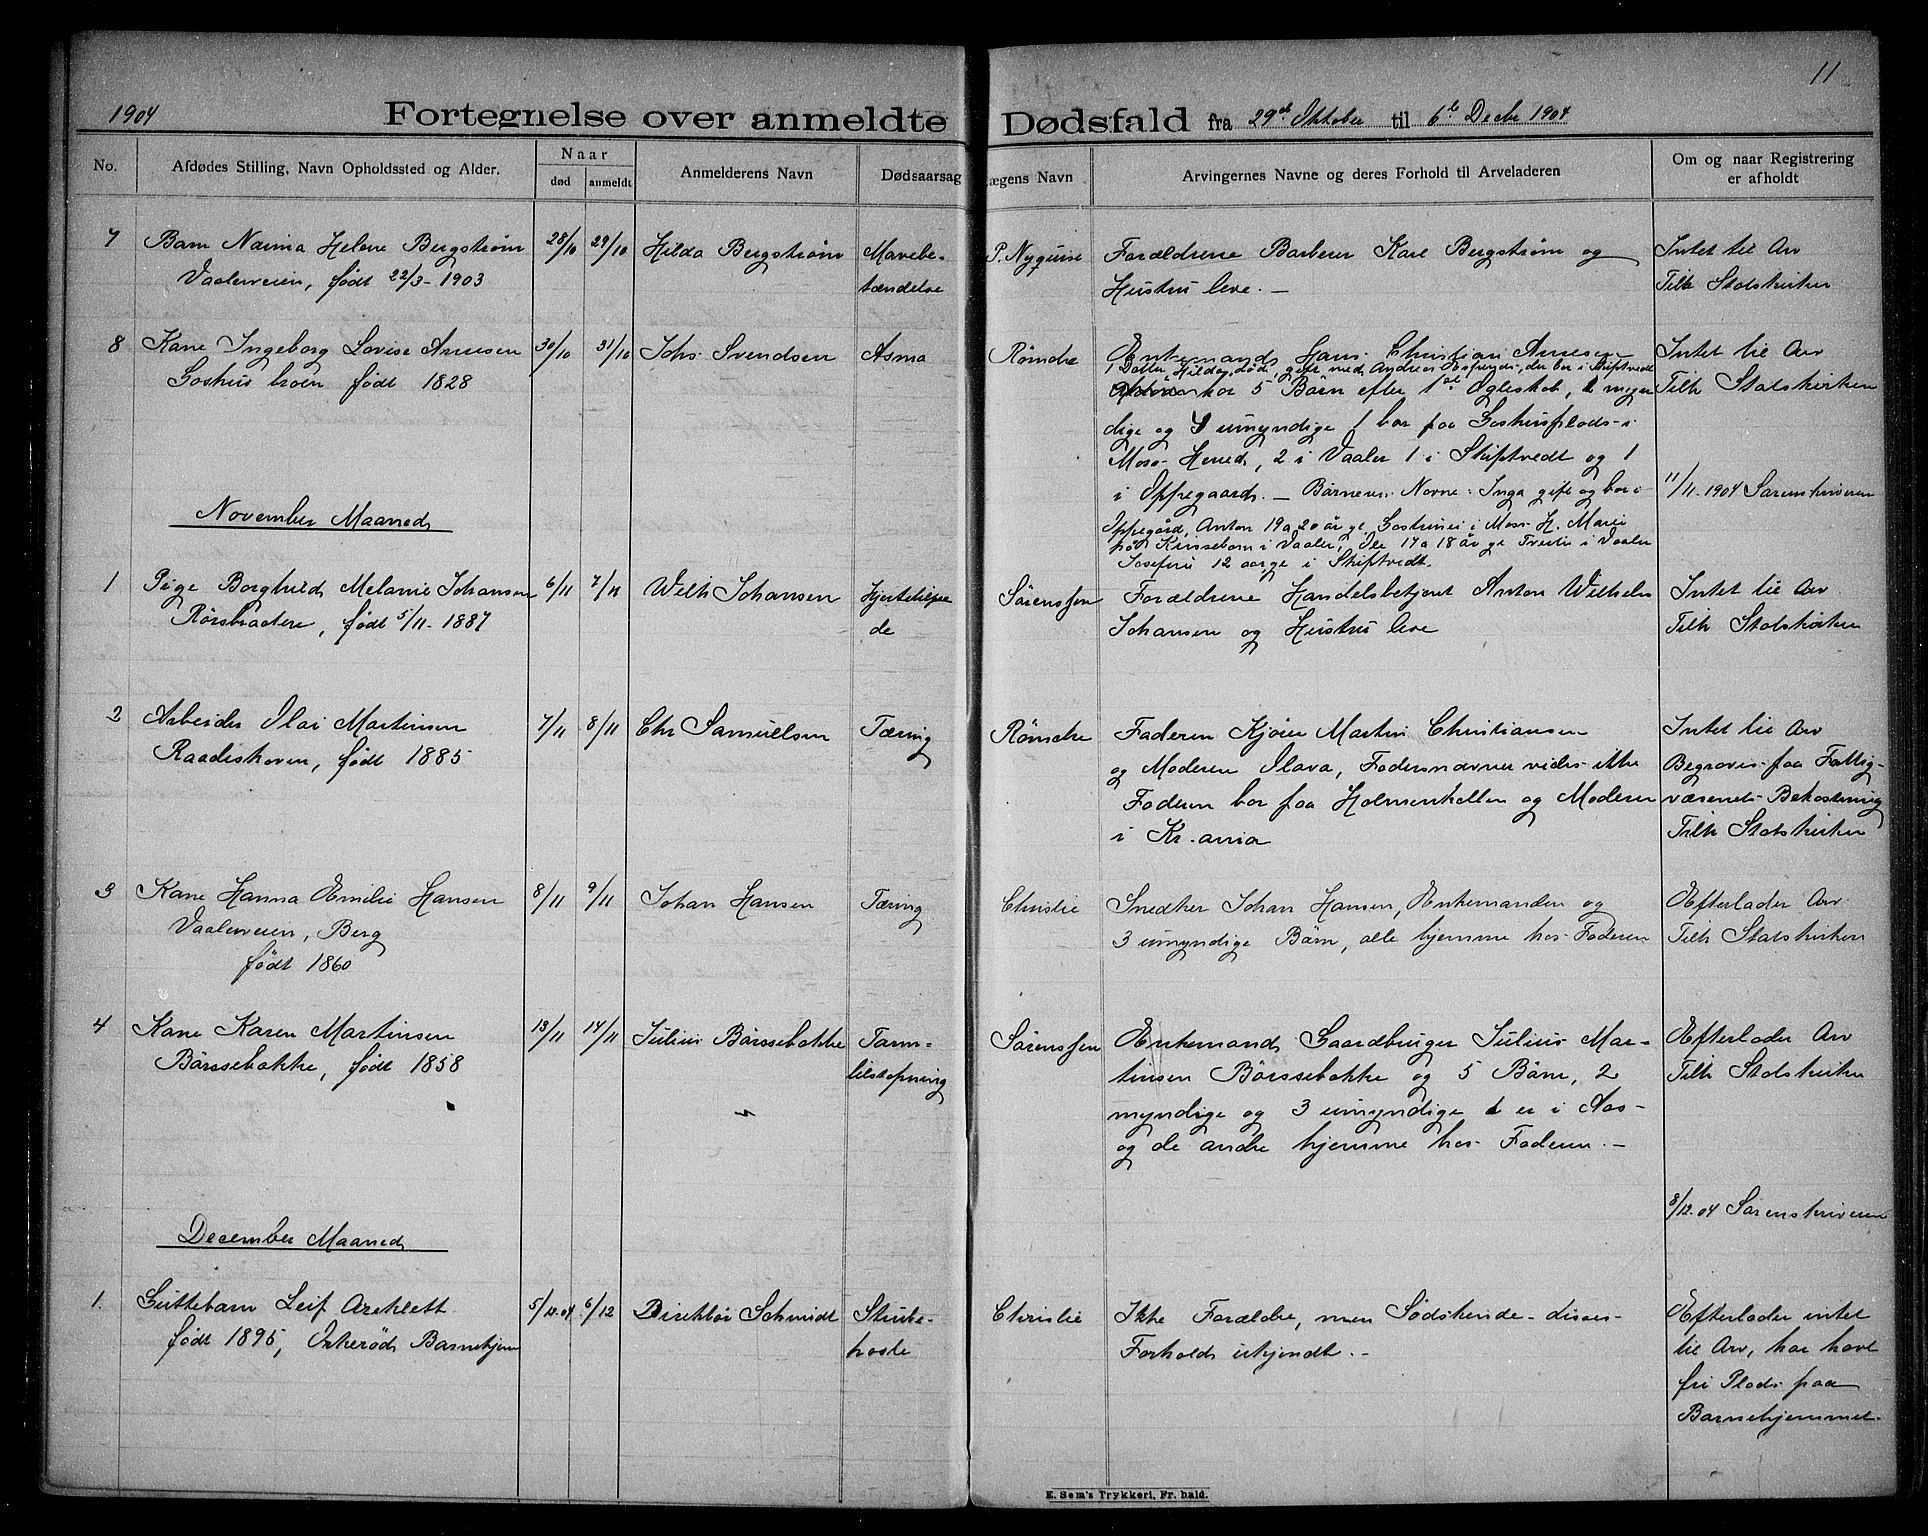 11
1904 Fortegnelse over anmeldte Dødsfald fra 29de Oktober til 6te Decbr 1904
No. Afdødes Stilling, Navn Opholdssted og Alder. Naar død anmeldt Anmelderens Navn Dødsaarsag Lægens Navn Arvingernes Navne og deres Forhold til Arveladeren Om og naar Registrering er afholdt
7 Barn Naima Helene Bergstrøm 28/10 29/10 Hilda Bergstrøm Mavebe- P. Forældrene Barberer Karl Bergstrøm og Intet til Arv
Vaalerveien, født 22/3-1903 tændelse Hustru leve. — Tilh Statskirken
8 Kone Ingeborg Lovise Arnesen 30/10 31/10 Johs Svendsen Asma Rømcke Enkemand Hans Christian Arnesen Intet til Arv
1 Datter, Hilda, død, gift med Andreas, der bor i Skiptvedt
Goshusbroen født 1828 har 5 Børn efter 1ste Ægteskab, 1 myn Tilh Statskirken
dige og 4 umyndige 1 bor paa Goshusplads i
Moss Herred, 2 i Vaaler 1 i Skiptvedt og 1
i Oppegaard. — Børnenes Navne: Inga gift og bor i 11/11-1904 Sorenskriveren
November Maaned
Oppegård, Anton 19 a 20 år gl, i Moss H. Marie
på i Vaaler, Ole 17 a 18 år gl i Vaaler
Josefine 12 aar gl i Skiptvedt.
1 Pige Borghild Melanie Johansen 6/11 7/11 Wilh Johansen Hjerteli Sørenssen Forældrene Handelsbetjent Anton Wilhelm Intet til Arv
født 5/11-1887 de Johansen og Hustru leve Tilh Statskirken
2 Arbeider Olai Martinsen 7/11 8/11 Chr Samuelsen Tæring Rømcke Faderen Kjører Martin Christiansen Intet til Arv
Raadiskoven, født 1885 og Moderen Olava, Fadersnavnet vides ikke Begraves paa Fattig-
Faderen bor paa Holmenkollen og Moderen væsenets Bekostning
i Kr.ania Tilh Statskirken
3 Kone Hanna Emilie Hansen 8/11 9/11 Johan Hansen Tæring Christie Snedker Johan Hansen, Enkemanden og Efterlader Arv
Vaalerveien, Berg 3 umyndige Børn, alle hjemme hos Faderen Tilh Statskirken
født 1860
4 Kone Karen Martinsen 13/11 14/11 Julius Børssebakke Tarm- Sørenssen Enkemand Gaardbruger Julius Mar- Efterlader Arv
Børssebakke, født 1858 tilstopning tinsen Børssebakke og 5 Børn, 2 Tilh Statskirken
myndige og 3 umyndige 1 er i Aas
og de andre hjemme hos Faderen. —
8/12.04 Sorenskriveren
December Maaned
1. Guttebarn Leif Areklett 5/12.04 6/12 Direktør Schmidt Strube- Christie Ikke Forældre, men Sødskende - disses Efterlader intet
født 1895, Orkerød Barnehjem hoste Forhold ukjendt. — til Arv, har havt
fri Plads paa
Barnehjemmet.
E. Sem's Trykkeri, Fr. hald.